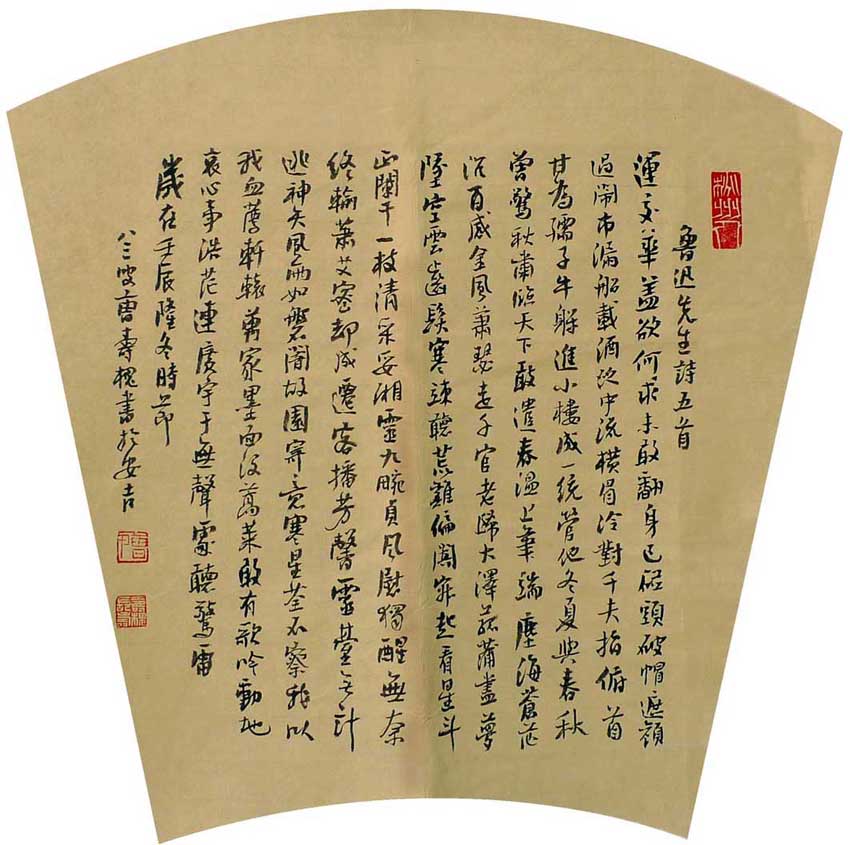 魯迅先生詩五首
運交華蓋欲何求未敢翻身已碰頭破帽遮顏
過鬧市漏船載酒泛中流橫眉冷對千夫指俯首
甘為孺子牛躲進小樓成一統管他冬夏與春秋
曾驚秋肅臨天下敢遣春溫上筆端塵海蒼茫
沉百感金風蕭瑟走千官老歸大澤菰蒲盡夢
墜空雲齒髮寒竦聽荒雞偏闃寂起看星斗
正闌干一枝清采妥湘靈九畹貞風慰獨醒無奈
終輸蕭艾密却成遷客播芳馨靈臺无計
逃神矢風雨如磐闇故園寄意寒星荃不察我以
我血薦軒轅萬家墨面沒蒿萊敢有歌吟動地
哀心事浩茫連廣宇于無聲處聽驚雷
歲在壬辰隆冬時節
八三叟曹壽槐書於安吉